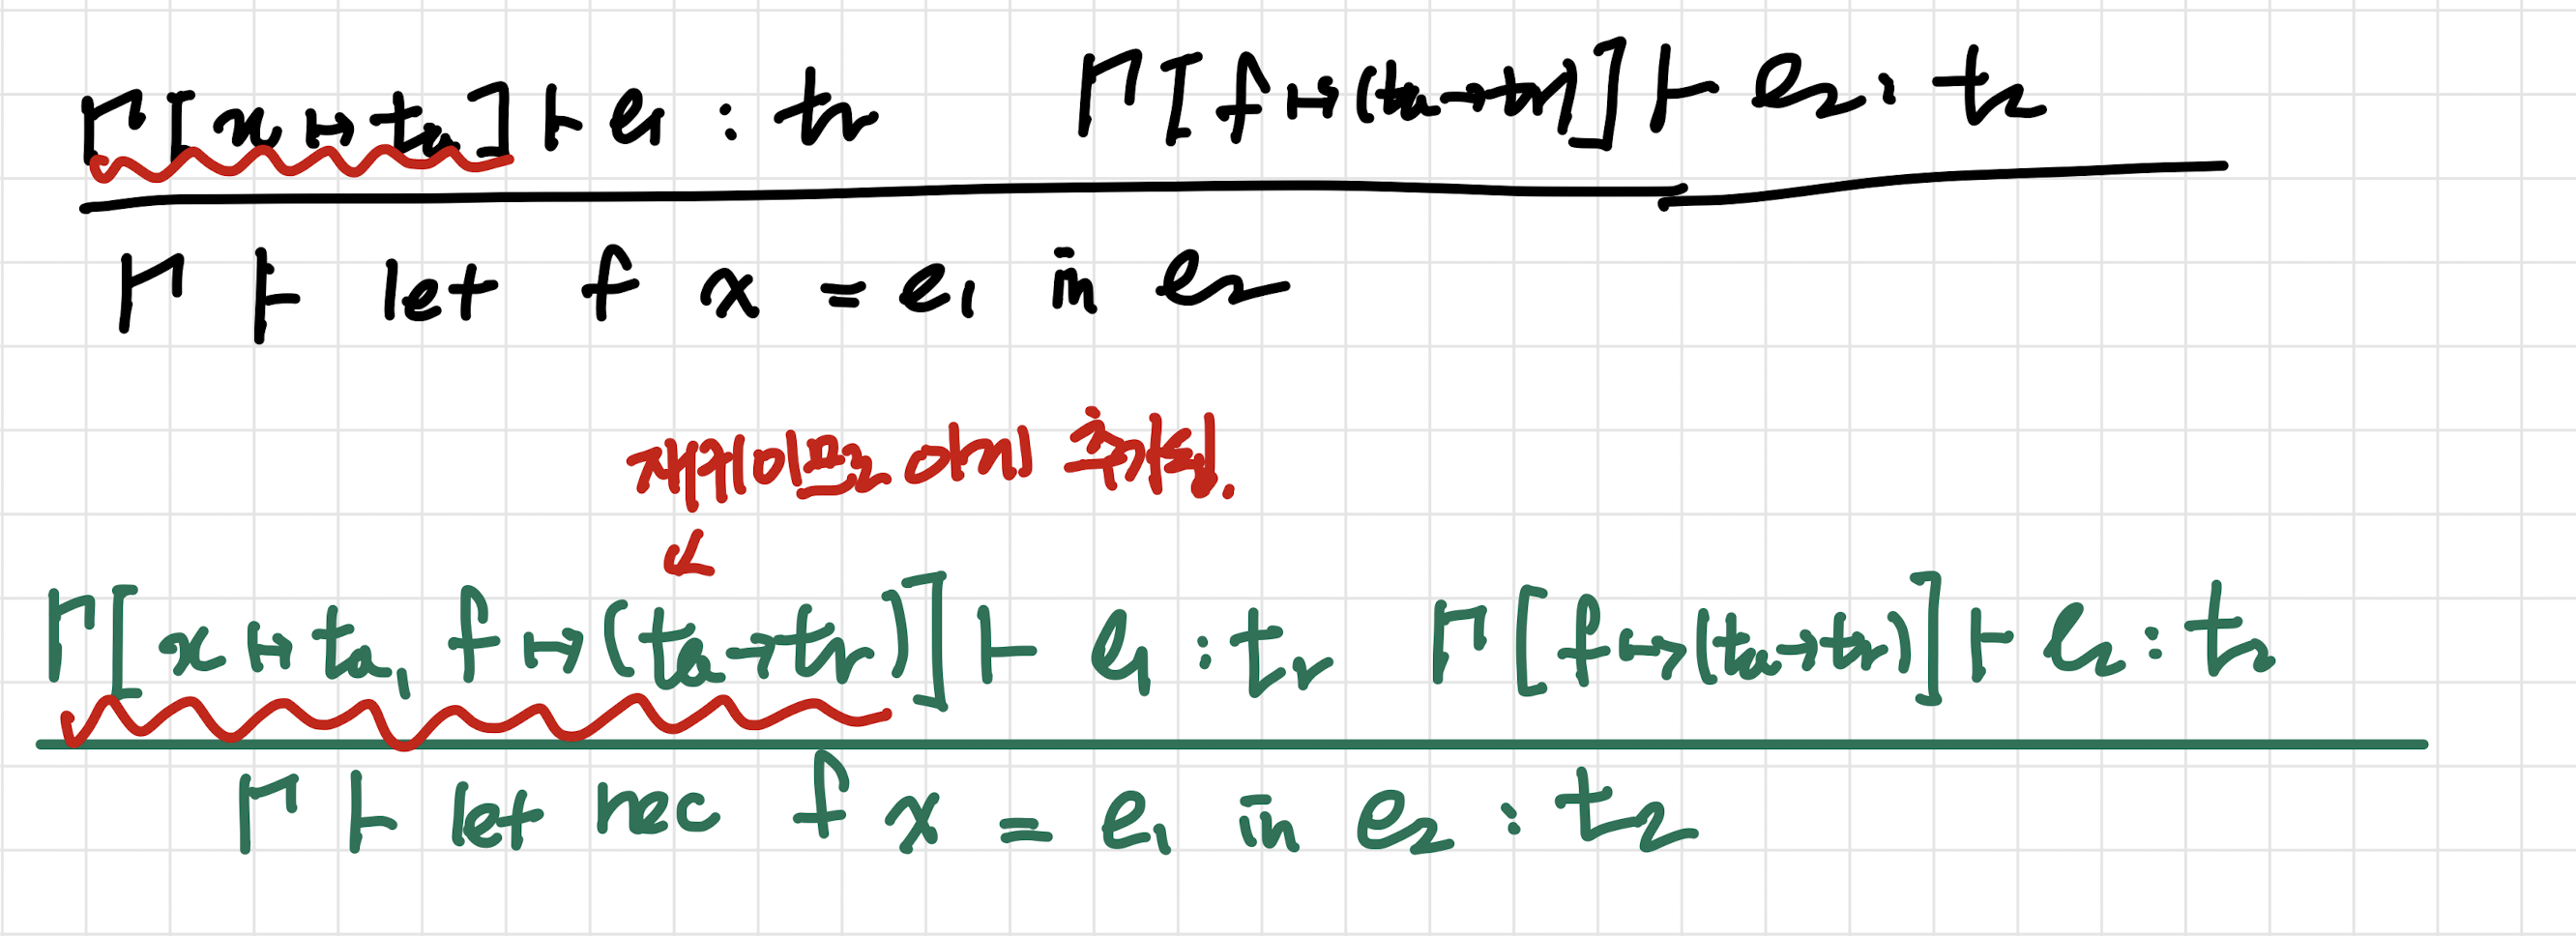 Γ[x ↦ ta] ⊢ e1 : tr Γ[f ↦ (ta → tr)] ⊢ e2 : t2
Γ ⊢ let f x = e1 in e2
재귀이므로 이게 추가됨.
Γ[x ↦ ta, f ↦ (ta → tr)] ⊢ e1 : tr Γ[f ↦ (ta → tr)] ⊢ e2 : t2
Γ ⊢ let rec f x = e1 in e2 : t2